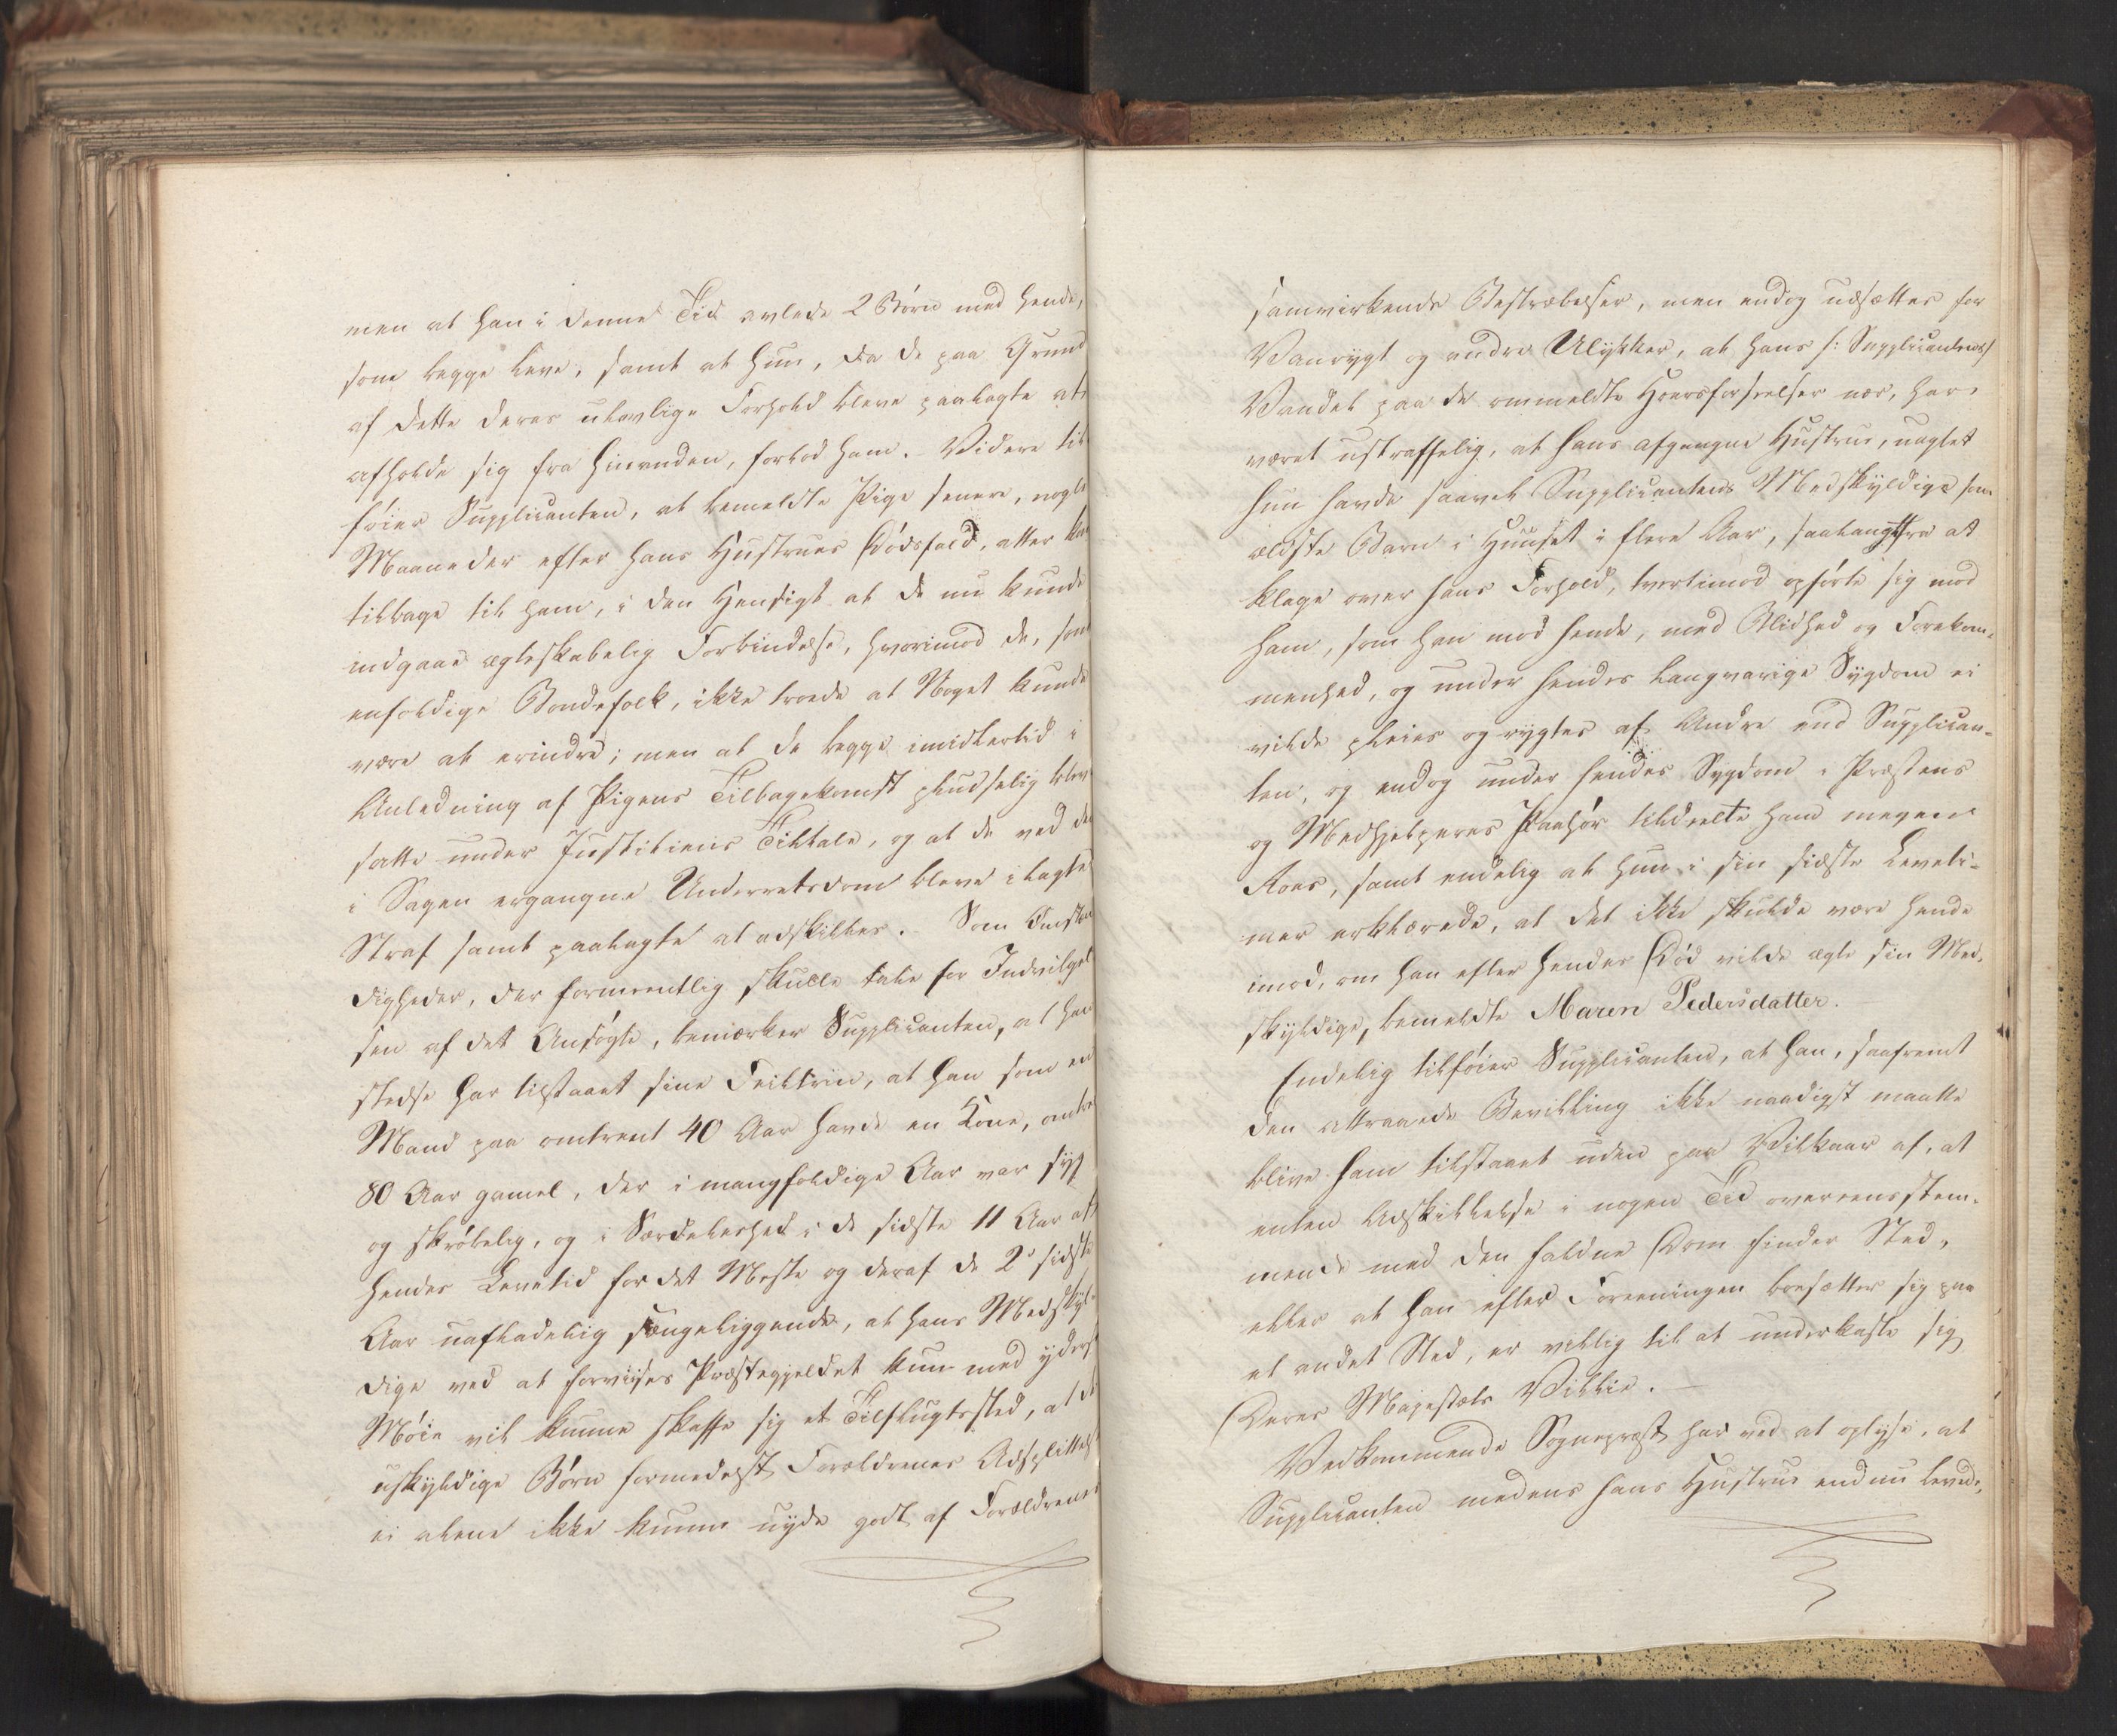 men at han i denne Tid avlede 2 Børn med hende,
som begge leve, samt at hun, da de paa Grund
af dette deres ulovlige Forhold bleve paalagte at
afholde sig fra hinanden, forlod ham. Videre til
føier Supplicanten, at bemeldte Pige senere, nogle
Maaneder efter hans Hustrues Dødsfald, atter kom
tilbage til ham, i den Hensigt at de nu kunde
indgaae ægteskabelig Forbindelse, hvorimod de, som
enfoldige Bondefolk, ikke troede at Noget kunde
være at erindre; men at de begge imidlertid i
Anledning af Pigens Tilbagekomst pludselig blev
satte under Justitiens Tiltale, og at de ved den
i Sagen ergangne Underretsdom bleve ilagte
Straf samt paalagte at adskilles. Som Omstæn
digheder, der formeentlig skulle tale for Indvilgel
sen af det Ansøgte, bemærker Supplicanten, at han
stedse har tilstaaet sine Feiltrin, at han som en
Mand paa omtrent 40 Aar havde en Kone, omtr
80 Aar gamel, der i mangfoldige Aar var syg
og skrøbelig, og i Særdeleshed i de sidste 11 Aar af
hendes Levetid for det Meste og deraf de 2 sidste
Aar uafladelig sængeliggende, at hans Medskyl-
dige ved at forviises Præstegjeldet kun med yderst
Møie vil kunne skaffe sig et Tilflugtssted, at de
uskyldige Børn formedelst Forældrenes Adsplittelse
ei alene ikke kunne nyde godt af Forældrenes
samvirkende Bestræbelser, men endog udsættes for
Vanrygt og andre Ulykker, at hans /: Supplicantens /
Vandel paa de ommeldte Hoersforseelser nær, har
været ustraffelig, at hans afgangne Hustrue, uagtet
hun havde saavel Supplicantens Medskyldige som
ældste Barn i Huuset i flere Aar, saalangtfra at
klage over hans Forhold, tvertimod opførte sig mod
ham, som han mod hende, med Blidhed og Forekom-
menhed, og under hendes langvarige Sygdom ei
vilde pleies og rygtes af Andre end Supplican-
ten, og endog under hendes Sygdom i Præstens
og Medhjelperes Paahør tildeelte ham megen
Roes, samt endelig at hun i sin sidste Leveti-
mer erklærede, at det ikke skulde være hende
imod, om han efter hendes Død vilde ægte sin Med-
skyldige, bemeldte Maren Pedersdatter.
Endelig tilføier Supplicanten, at han, saafremt
den attraaede Bevilling ikke naadigst maatte
blive ham tilstaaet uden paa Vilkaar af, at
enten Adskillelse i nogen Tid overeensstem-
mende med den faldne Dom finder Sted,
eller at han efter Foreeningen bosætter sig paa
et andet Sted, er villig til at underkaste sig
Deres Majestæts Villie. —
Vedkommende Sognepræst har ved at oplyse, at
Supplicanten medens hans Hustrue endnu levede,